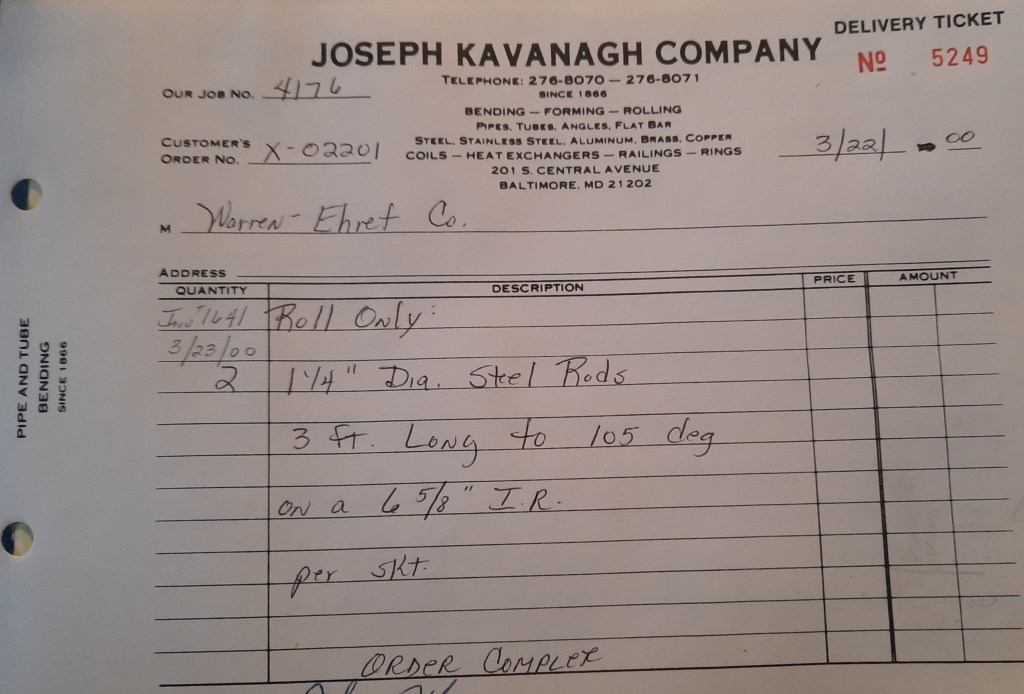 DELIVERY TICKET
JOSEPH KAVANAGH COMPANY
Nº 5249
TELEPHONE: 276-8070 — 276-8071
SINCE 1866
OUR JOB NO. 4176
BENDING — FORMING — ROLLING
PIPES, TUBES, ANGLES, FLAT BAR
STEEL, STAINLESS STEEL, ALUMINUM, BRASS, COPPER
COILS — HEAT EXCHANGERS — RAILINGS — RINGS
CUSTOMER'S
ORDER NO. X-02201
3/22/ 00
201 S. CENTRAL AVENUE
BALTIMORE, MD 21202
M Warren-Ehret Co.
ADDRESS
QUANTITY DESCRIPTION PRICE AMOUNT
Inv# 1641 Roll Only:
3/23/00
2 1 1/4" Dia. Steel Rods
3 ft. Long to 105 deg
on a 6 5/8" I.R.
per skt.
ORDER COMPLET
PIPE AND TUBE
BENDING
SINCE 1866